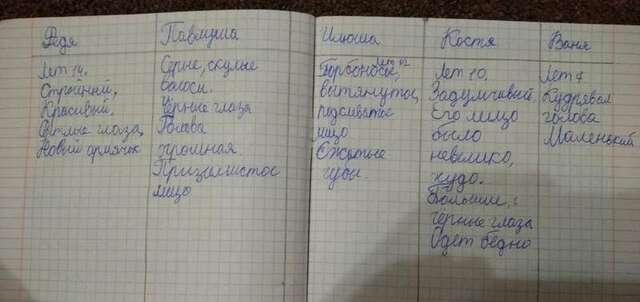 Федя
Лет 14.
Стройный,
Красивый,
Светлые глаза,
Новый армячок
Павлуша
Серые, скулые
волосы.
Чёрные глаза
Голова
громная.
Лицо
Илюша
Лет 12
Горбоносое,
вытянутое,
подслеватое
лицо
Сжатые
губы.
Костя
Лет 10.
Задумчивый,
Его лицо
было
невелико,
худо.
Большие,
чёрные глаза
Одет бедно
Ваня
Лет 7
Кудрявая
голова
Маленький